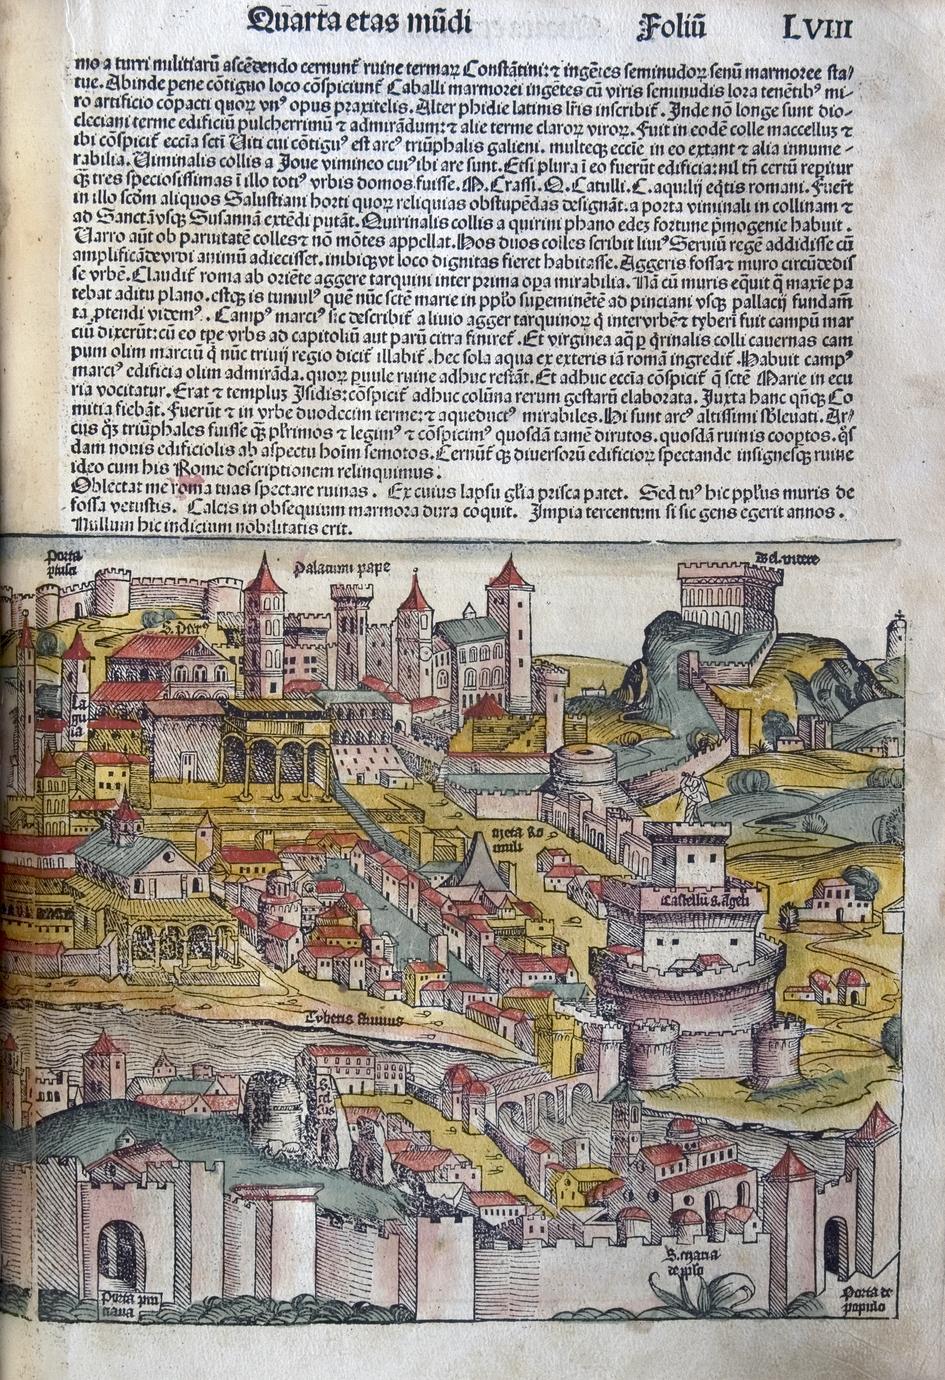 Quarta etas mũdi Foliũ LVIII
mo a turri militiarũ ascẽdendo cernunt᷑ ruine termaꝝ Constãtini: ⁊ ingẽtes seminudoꝝ senũ marmoree sta/
tue. Abinde pene cõtiguo loco cõspiciunt᷑ Caballi marmorei ingẽtes cũ viris seminudis lora tenẽtibꝰ mi-
ro artificio cõpacti quoꝝ vnꝰ opus praxitelis. Alter phidie latinis lr̃is inscribit᷑. Inde nõ longe sunt dio-
cleciani terme edificiũ pulcherrimũ ⁊ admirãdum: ⁊ alie terme claroꝝ viroꝝ. Fuit in codẽ colle maccelluꝫ ⁊
ibi cõspicit᷑ ecc̃ia scti Uiti cui cõtiguꝰ est arcꝰ triũphalis galieni. multeqꝫ ecc̃ie in eo extant ⁊ alia innume-
rabilia. Uiminalis collis a Joue vimineo cuiꝰ ibi are sunt. Etsi plura ĩ eo fuerũt edificia: nil tñ certũ repitur
qꝫ tres speciosissimas ĩ illo totiꝰ vrbis domos fuisse. M. Crassi. Q. Catulli. C. aquilij eq̃tis romani. Fuer̃t
in illo scdm aliquos Salustiani horti quoꝝ reliquias obstupẽdas designãt. a porta viminali in collinam ⁊
ad Sanctãvsqꝫ Susannã extẽdi putãt. Quirinalis collis a quirini phano edeꝫ fortune p̃mogenie habuit.
Uarro aũt ob paruitatẽ colles ⁊ nõ mõtes appellat. Hos duos colles scribit liuiꝰ Seruiũ regẽ addidisse cũ
amplificãde vrbi animũ adiecisset. inibiqꝫ vt loco dignitas fieret habitasse. Aggeris fossa ⁊ muro circũdedis
se vrbẽ. Claudit᷑ roma ab oriẽte aggere tarquini inter prima oꝑa mirabilia. Nã cũ muris equit᷑ q̃ maxie pa
tebat aditu plano. estqꝫ is tumulꝰ quẽ nũc sctẽ marie in pp̃lo suꝑeminẽtẽ ad pinciani vsqꝫ pallacij fundam̃
ta ꝓtendi videmꝰ. Campꝰ marciꝰ sic describit᷑ a liuio agger tarquinoꝝ q̃ inter vrbẽ ⁊ tyberĩ fuit campũ mar
ciũ dixerũt: cũ eo tꝑe vrbs ad capitoliũ aut parũ citra finiret᷑. Et virginea aq̃ ꝑ q̃rinalis colli cauernas cam
pum olim marciũ q̃ nũc triuij regio dicit᷑ illabit᷑. hec sola aqua ex exteris iã romã ingredit᷑. Habuit campꝰ
marciꝰ edificia olim admirãda. quoꝝ puule ruine adhuc restãt. Et adhuc ecc̃ia cõspicit᷑ q̃ sctẽ Marie in equ
ria vocitatur. Erat ⁊ templuꝫ Isidis: cõspicit᷑ adhuc colũna rerum gestarũ elaborata. Juxta hanc qñqꝫ Co
mitia fiebãt. Fuerũt ⁊ in vrbe duodecim terme: ⁊ aqueductꝰ mirabiles. Hi sunt arcꝰ altissimi sb̃leuati. Ar/
cus q̃ꝫ triũphales fuisse q̃ꝫ pl̃rimos ⁊ legimꝰ ⁊ cõspicimꝰ quosdã tamẽ dirutos. quosdã ruinis cooptos. q̃s
dam nouis edificiolis ab aspectu hoĩm semotos. Cernũt᷑ q̃ꝫ diuersorũ edificioꝝ spectande insignesqꝫ ruine
ideo cum his Rome descriptionem relinquimus.
Oblectat me roma tuas spectare ruinas. Ex cuius lapsu gl̃ia prisca patet. Sed tuꝰ hic pp̃lus muris de
fossa vetustis. Calcis in obsequium marmora dura coquit. Impia tercentum si sic gens egerit annos.
Nullum hic indicium nobilitatis erit.
Porta
Palacium pape
Bel. videre
S. Petrꝰ
La
gu
lia
meta Ro
muli
Castellũ s. ãgeli
Tyberis fluuius
S. maria
de pp̃lo
Porta pin
ciana
Porta de
populo